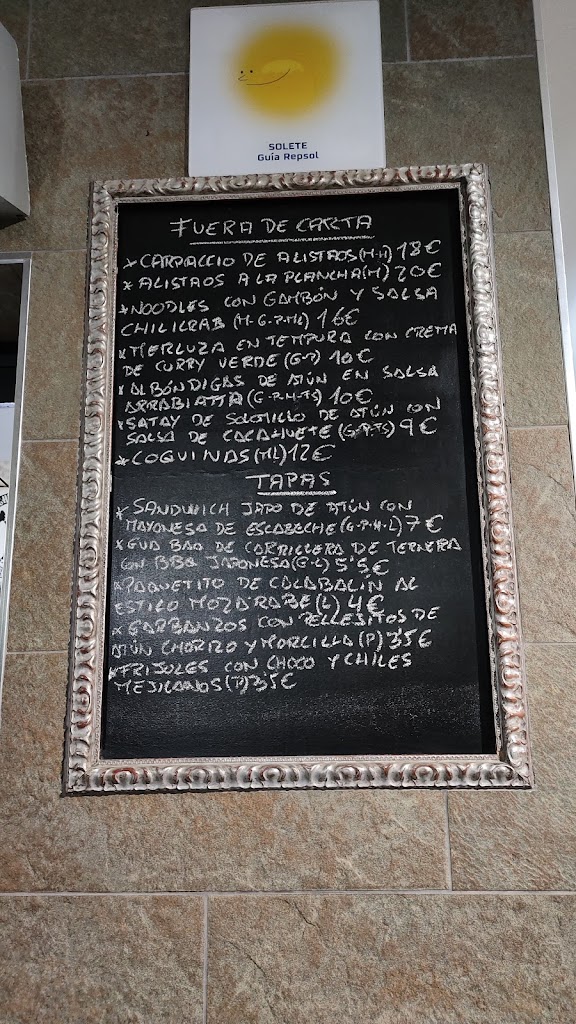 SOLETE
Guía Repsol
FUERA DE CARTA
* CARPACCIO DE ALISTAOS (M-H) 18€
* ALISTAOS A LA PLANCHA (M) 20€
* NOODLES CON GAMBÓN Y SALSA
CHILICRAB (M-G-P-ML) 16€
* MERLUZA EN TEMPURA CON CREMA
DE CURRY VERDE (G-P) 10€
* ALBÓNDIGAS DE ATÚN EN SALSA
ARRABIATTA (G-P-H-TS) 10€
* SATAY DE SOLOMILLO DE ATÚN CON
SALSA DE CACAHUETE (G-P-TS) 9€
* COQUINAS (ML) 12€
TAPAS
* SANDWICH JAPO DE ATÚN CON
MAYONESA DE ESCABECHE (G-P-H-L) 7€
* GUA BAO DE CARRILLERA DE TERNERA
CON BBQ JAPONESA (G-L) 5'5€
* PAQUETITO DE CALABACÍN AL
ESTILO MOZARABE (L) 4€
* GARBANZOS CON PELLEJITOS DE
ATÚN CHORIZO Y MORCILLA (P) 3'5€
* FRIJOLES CON CHOCO Y CHILES
MEJICANOS (P) 3'5€